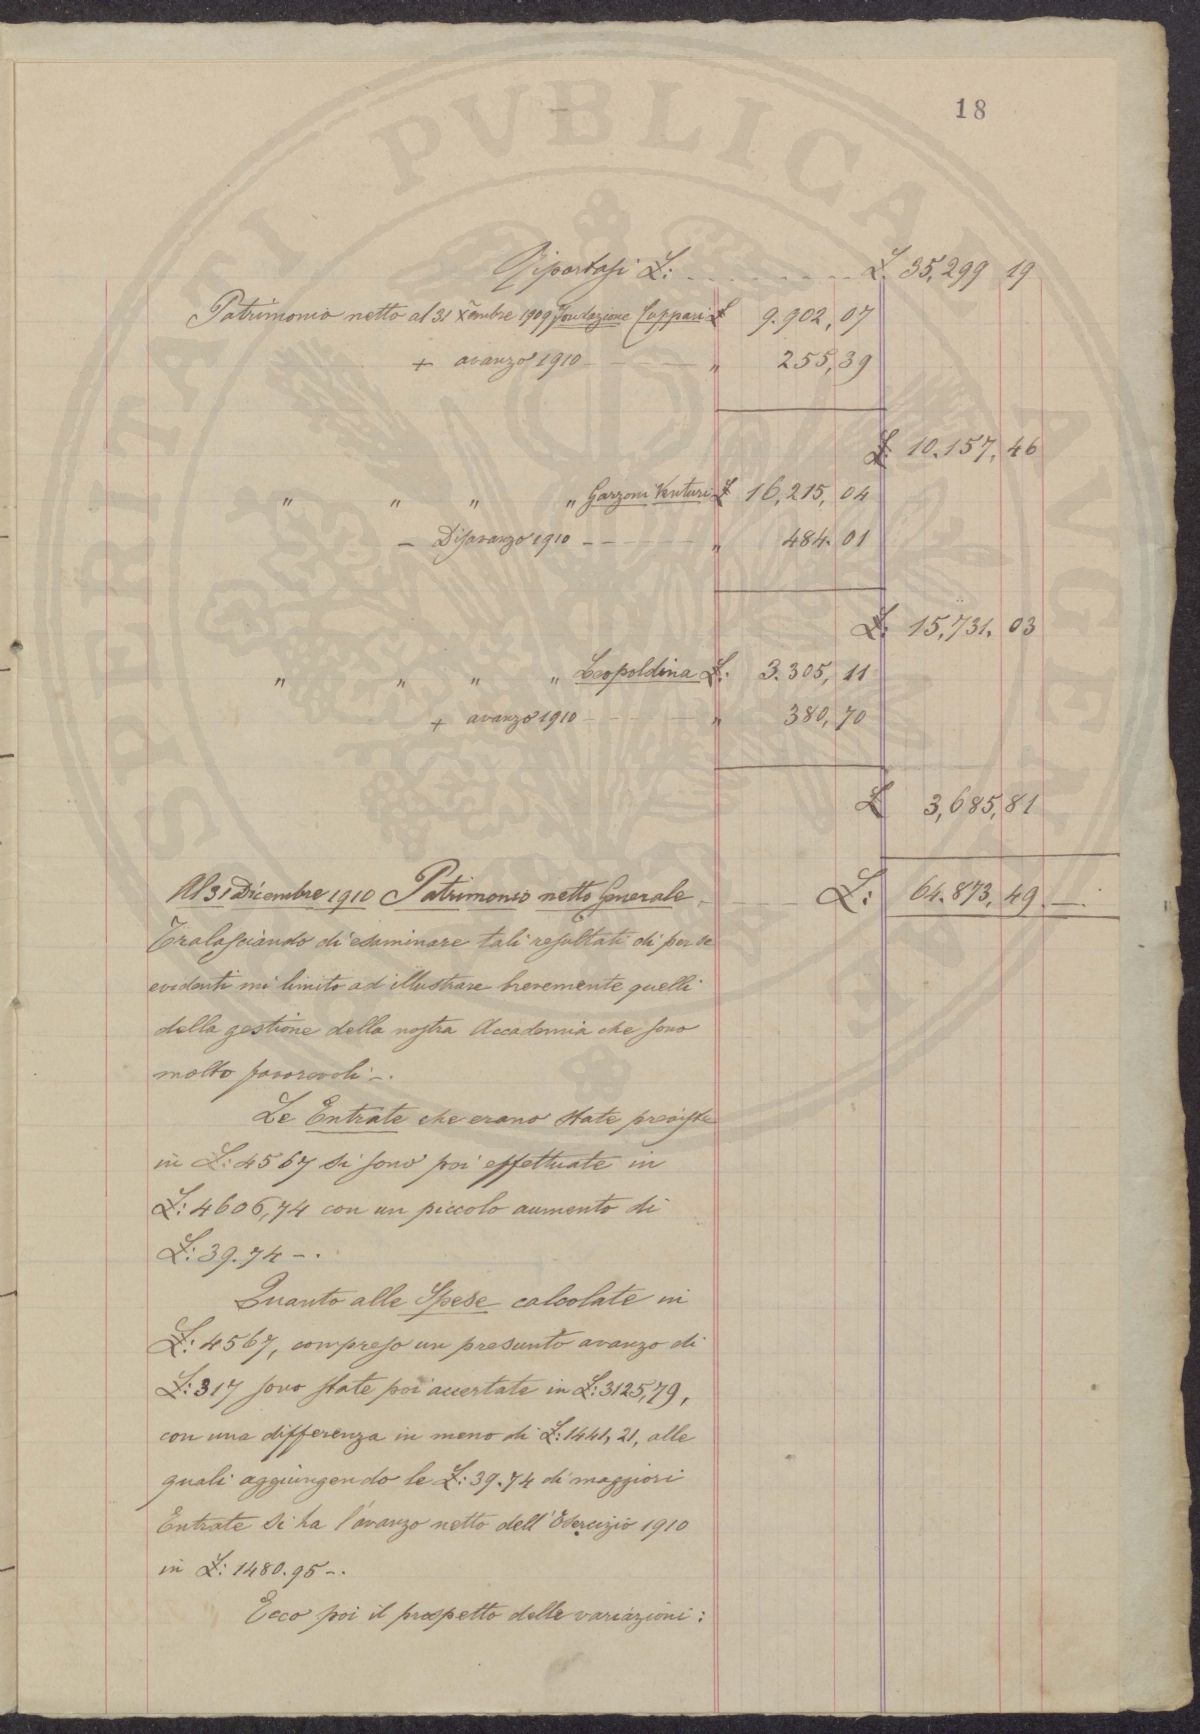 18
Riportasi £: - - - - - - - - £. 35,299 19
Patrimonio netto al 31 Xembre 1909 Fondazione Cuppari £ 9.902,07
+ avanzo 1910 - - - - " 255,39
£. 10.157,46
" " " " Garzoni Venturi £ 16,215,04
- Disavanzo 1910 - - - - - " 484.01
£: 15,731.03
" " " " Leopoldina £: 3.305,11
+ avanzo 1910 - - - - " 380,70
£ 3,685,81
Al 31 Dicembre 1910 Patrimonio netto Generale - - - - £: 64.873,49 -.
Tralasciando di esaminare tali resultati di per se
evidenti mi limito ad illustrare brevemente quelli
della gestione della nostra Accademia che sono
molto favorevoli -.
Le Entrate che erano state previste
in £: 4567 si sono poi effettuate in
£: 4606,74 con un piccolo aumento di
£: 39.74 -.
Quanto alle Spese calcolate in
£: 4567, compreso un presunto avanzo di
£: 317 sono state poi accertate in £: 3125,79,
con una differenza in meno di £: 1441,21, alle
quali aggiungendo le £: 39.74 di maggiori
Entrate si ha l'avanzo netto dell'Esercizio 1910
in £: 1480.95 -.
Ecco poi il prospetto delle variazioni:
PROSPERITATI PUBLICAE AUGENDAE